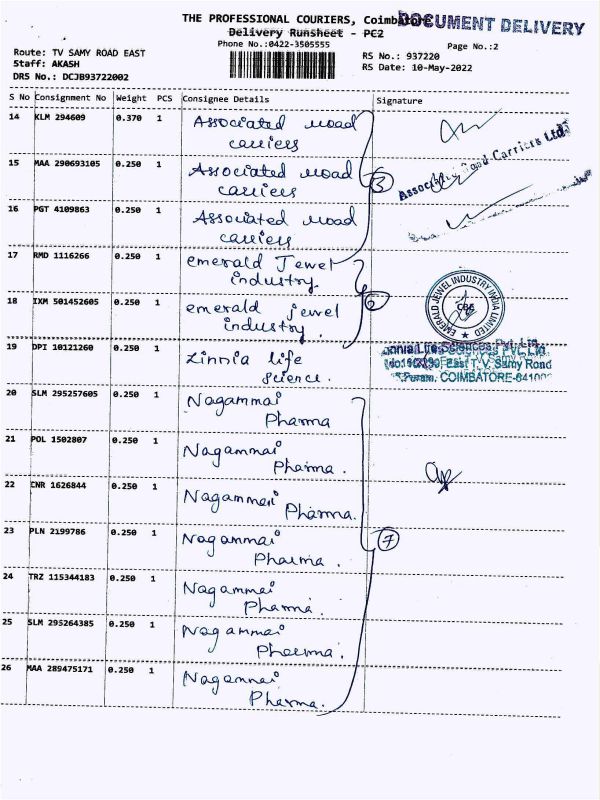 THE PROFESSIONAL COURIERS, Coimbatore
DOCUMENT DELIVERY
Delivery Runsheet - PC2
Phone No.:0422-3505555
Page No.:2
Route: TV SAMY ROAD EAST
Staff: AKASH
DRS No.: DCJB93722002
RS No.: 937220
RS Date: 10-May-2022
S No Consignment No Weight PCS Consignee Details Signature
14 KLM 294609 0.370 1 Associated road
carriers
15 MAA 290693105 0.250 1 Associated road
carriers
3
Road Carriers Ltd.
16 PGT 4109863 0.250 1 Associated road
carriers
17 RMD 1116266 0.250 1 emerald Jewel
industry.
18 IXM 501452605 0.250 1 emerald jewel
industry.
6
EMERALD JEWEL INDUSTRY INDIA LIMITED
CBE
19 DPI 10121260 0.250 1 Zinnia life
science.
Zinnia Life Sciences Pvt. Ltd.
East T.V. Samy Road
COIMBATORE-641002
20 SLM 295257605 0.250 1 Nagammai
Pharma
21 POL 1502807 0.250 1 Nagammai
Pharma.
22 CNR 1626844 0.250 1 Nagammai
Pharma.
23 PLN 2199786 0.250 1 Nagammai
Pharma.
7
24 TRZ 115344183 0.250 1 Nagammai
Pharma.
25 SLM 295264385 0.250 1 Nagammai
Pharma.
26 MAA 289475171 0.250 1 Nagammai
Pharma.